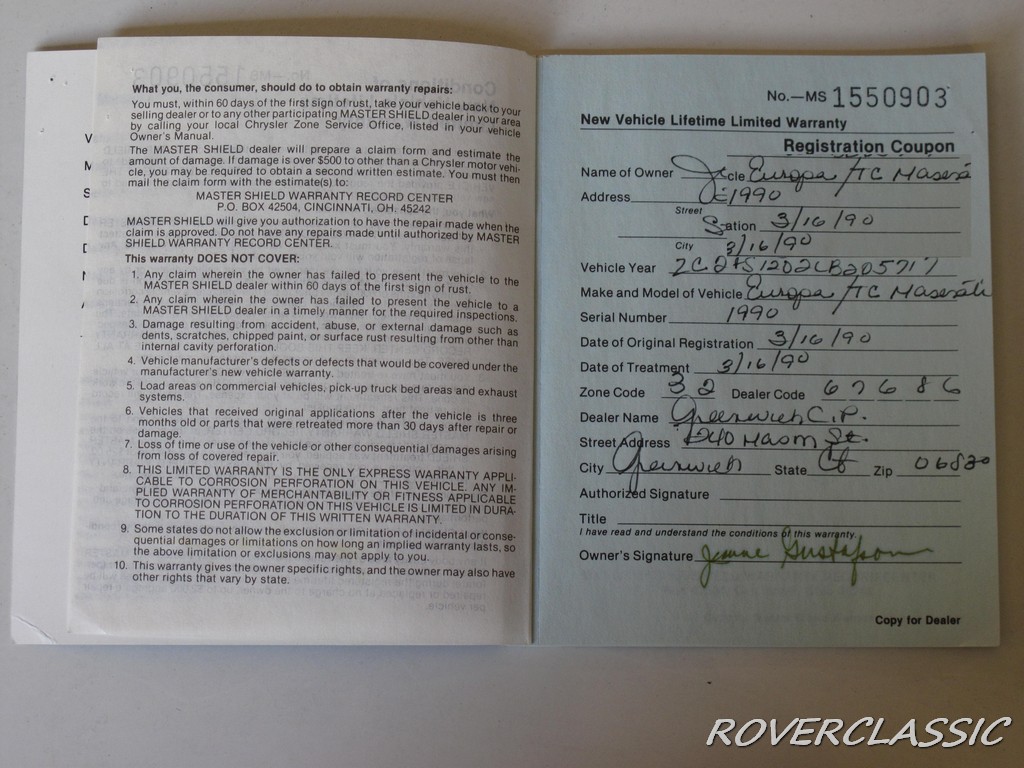 What you, the consumer, should do to obtain warranty repairs:
You must, within 60 days of the first sign of rust, take your vehicle back to your
selling dealer or to any other participating MASTER SHIELD dealer in your area
by calling your local Chrysler Zone Service Office, listed in your vehicle
Owner's Manual.
The MASTER SHIELD dealer will prepare a claim form and estimate the
amount of damage. If damage is over $500 to other than a Chrysler motor vehi-
cle, you may be required to obtain a second written estimate. You must then
mail the claim form with the estimate(s) to:
MASTER SHIELD WARRANTY RECORD CENTER
P.O. BOX 42504, CINCINNATI, OH. 45242
MASTER SHIELD will give you authorization to have the repair made when the
claim is approved. Do not have any repairs made until authorized by MASTER
SHIELD WARRANTY RECORD CENTER.
This warranty DOES NOT COVER:
1. Any claim wherein the owner has failed to present the vehicle to the
MASTER SHIELD dealer within 60 days of the first sign of rust.
2. Any claim wherein the owner has failed to present the vehicle to a
MASTER SHIELD dealer in a timely manner for the required inspections.
3. Damage resulting from accident, abuse, or external damage such as
dents, scratches, chipped paint, or surface rust resulting from other than
internal cavity perforation.
4. Vehicle manufacturer's defects or defects that would be covered under the
manufacturer's new vehicle warranty.
5. Load areas on commercial vehicles, pick-up truck bed areas and exhaust
systems.
6. Vehicles that received original applications after the vehicle is three
months old or parts that were retreated more than 30 days after repair or
damage.
7. Loss of time or use of the vehicle or other consequential damages arising
from loss of covered repair.
8. THIS LIMITED WARRANTY IS THE ONLY EXPRESS WARRANTY APPLI-
CABLE TO CORROSION PERFORATION ON THIS VEHICLE. ANY IM-
PLIED WARRANTY OF MERCHANTABILITY OR FITNESS APPLICABLE
TO CORROSION PERFORATION ON THIS VEHICLE IS LIMITED IN DURA-
TION TO THE DURATION OF THIS WRITTEN WARRANTY.
9. Some states do not allow the exclusion or limitation of incidental or conse-
quential damages or limitations on how long an implied warranty lasts, so
the above limitation or exclusions may not apply to you.
10. This warranty gives the owner specific rights, and the owner may also have
other rights that vary by state.
No.—MS 1550903
New Vehicle Lifetime Limited Warranty
Registration Coupon
Name of Owner cle Europa /TC Masera
Address 1990
Street
ation 3/16/90
City 3/16/90
Vehicle Year
Make and Model of Vehicle Europa /TC Maserati
Serial Number 1990
Date of Original Registration 3/16/90
Date of Treatment 3/16/90
Zone Code 32 Dealer Code 67686
Dealer Name Greenwich C.P.
Street Address 240 Mason St.
City Greenwich State Ct Zip 06830
Authorized Signature
Title
I have read and understand the conditions of this warranty.
Owner's Signature Jeanne Gustafson
Copy for Dealer
ROVERCLASSIC